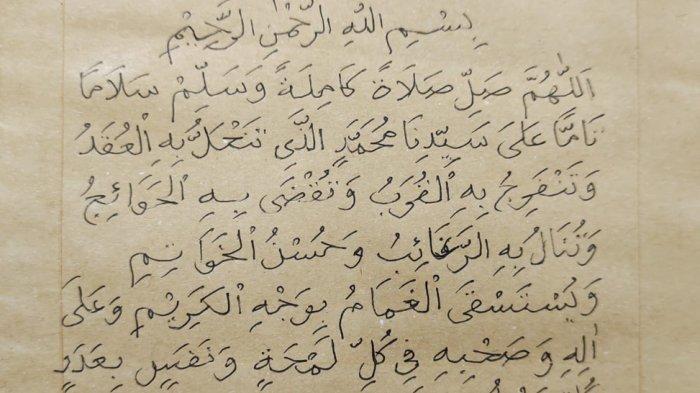 بِسْمِ اللهِ الرَّحْمٰنِ الرَّحِيْمِ
اَللّٰهُمَّ صَلِّ صَلَاةً كَامِلَةً وَسَلِّمْ سَلَامًا
تَامًّا عَلَى سَيِّدِنَا مُحَمَّدٍ الَّذِى تَنْحَلُّ بِهِ الْعُقَدُ
وَتَنْفَرِجُ بِهِ الْقُرَبُ وَتُقْضَى بِهِ الْحَوَائِجُ
وَتُنَالُ بِهِ الرَّغَائِبُ وَحُسْنُ الْخَوَاتِمِ
وَيُسْتَسْقَى الْغَمَامُ بِوَجْهِ الْكَرِيْمِ وَعَلَى
اٰلِهِ وَصَحْبِهِ فِي كُلِّ لَمْحَةٍ وَنَفَسٍ بِعَدَدِ